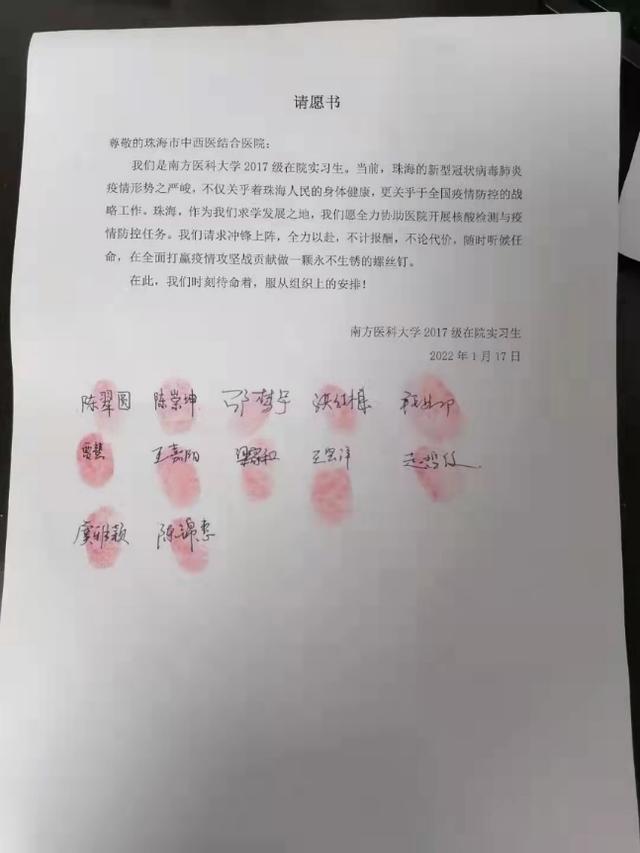 请愿书
尊敬的珠海市中西医结合医院：
我们是南方医科大学2017级在院实习生。当前，珠海的新型冠状病毒肺炎
疫情形势之严峻，不仅关乎着珠海人民的身体健康，更关乎于全国疫情防控的战
略工作。珠海，作为我们求学发展之地，我们愿全力协助医院开展核酸检测与疫
情防控任务。我们请求冲锋上阵，全力以赴，不计报酬，不论代价，随时听候任
命，在全面打赢疫情攻坚战贡献做一颗永不生锈的螺丝钉。
在此，我们时刻待命着，服从组织上的安排！
南方医科大学2017级在院实习生
2022年1月17日
陈翠圆 陈崇坤
贾慧 王嘉阳
虞雅颖 陈锦李